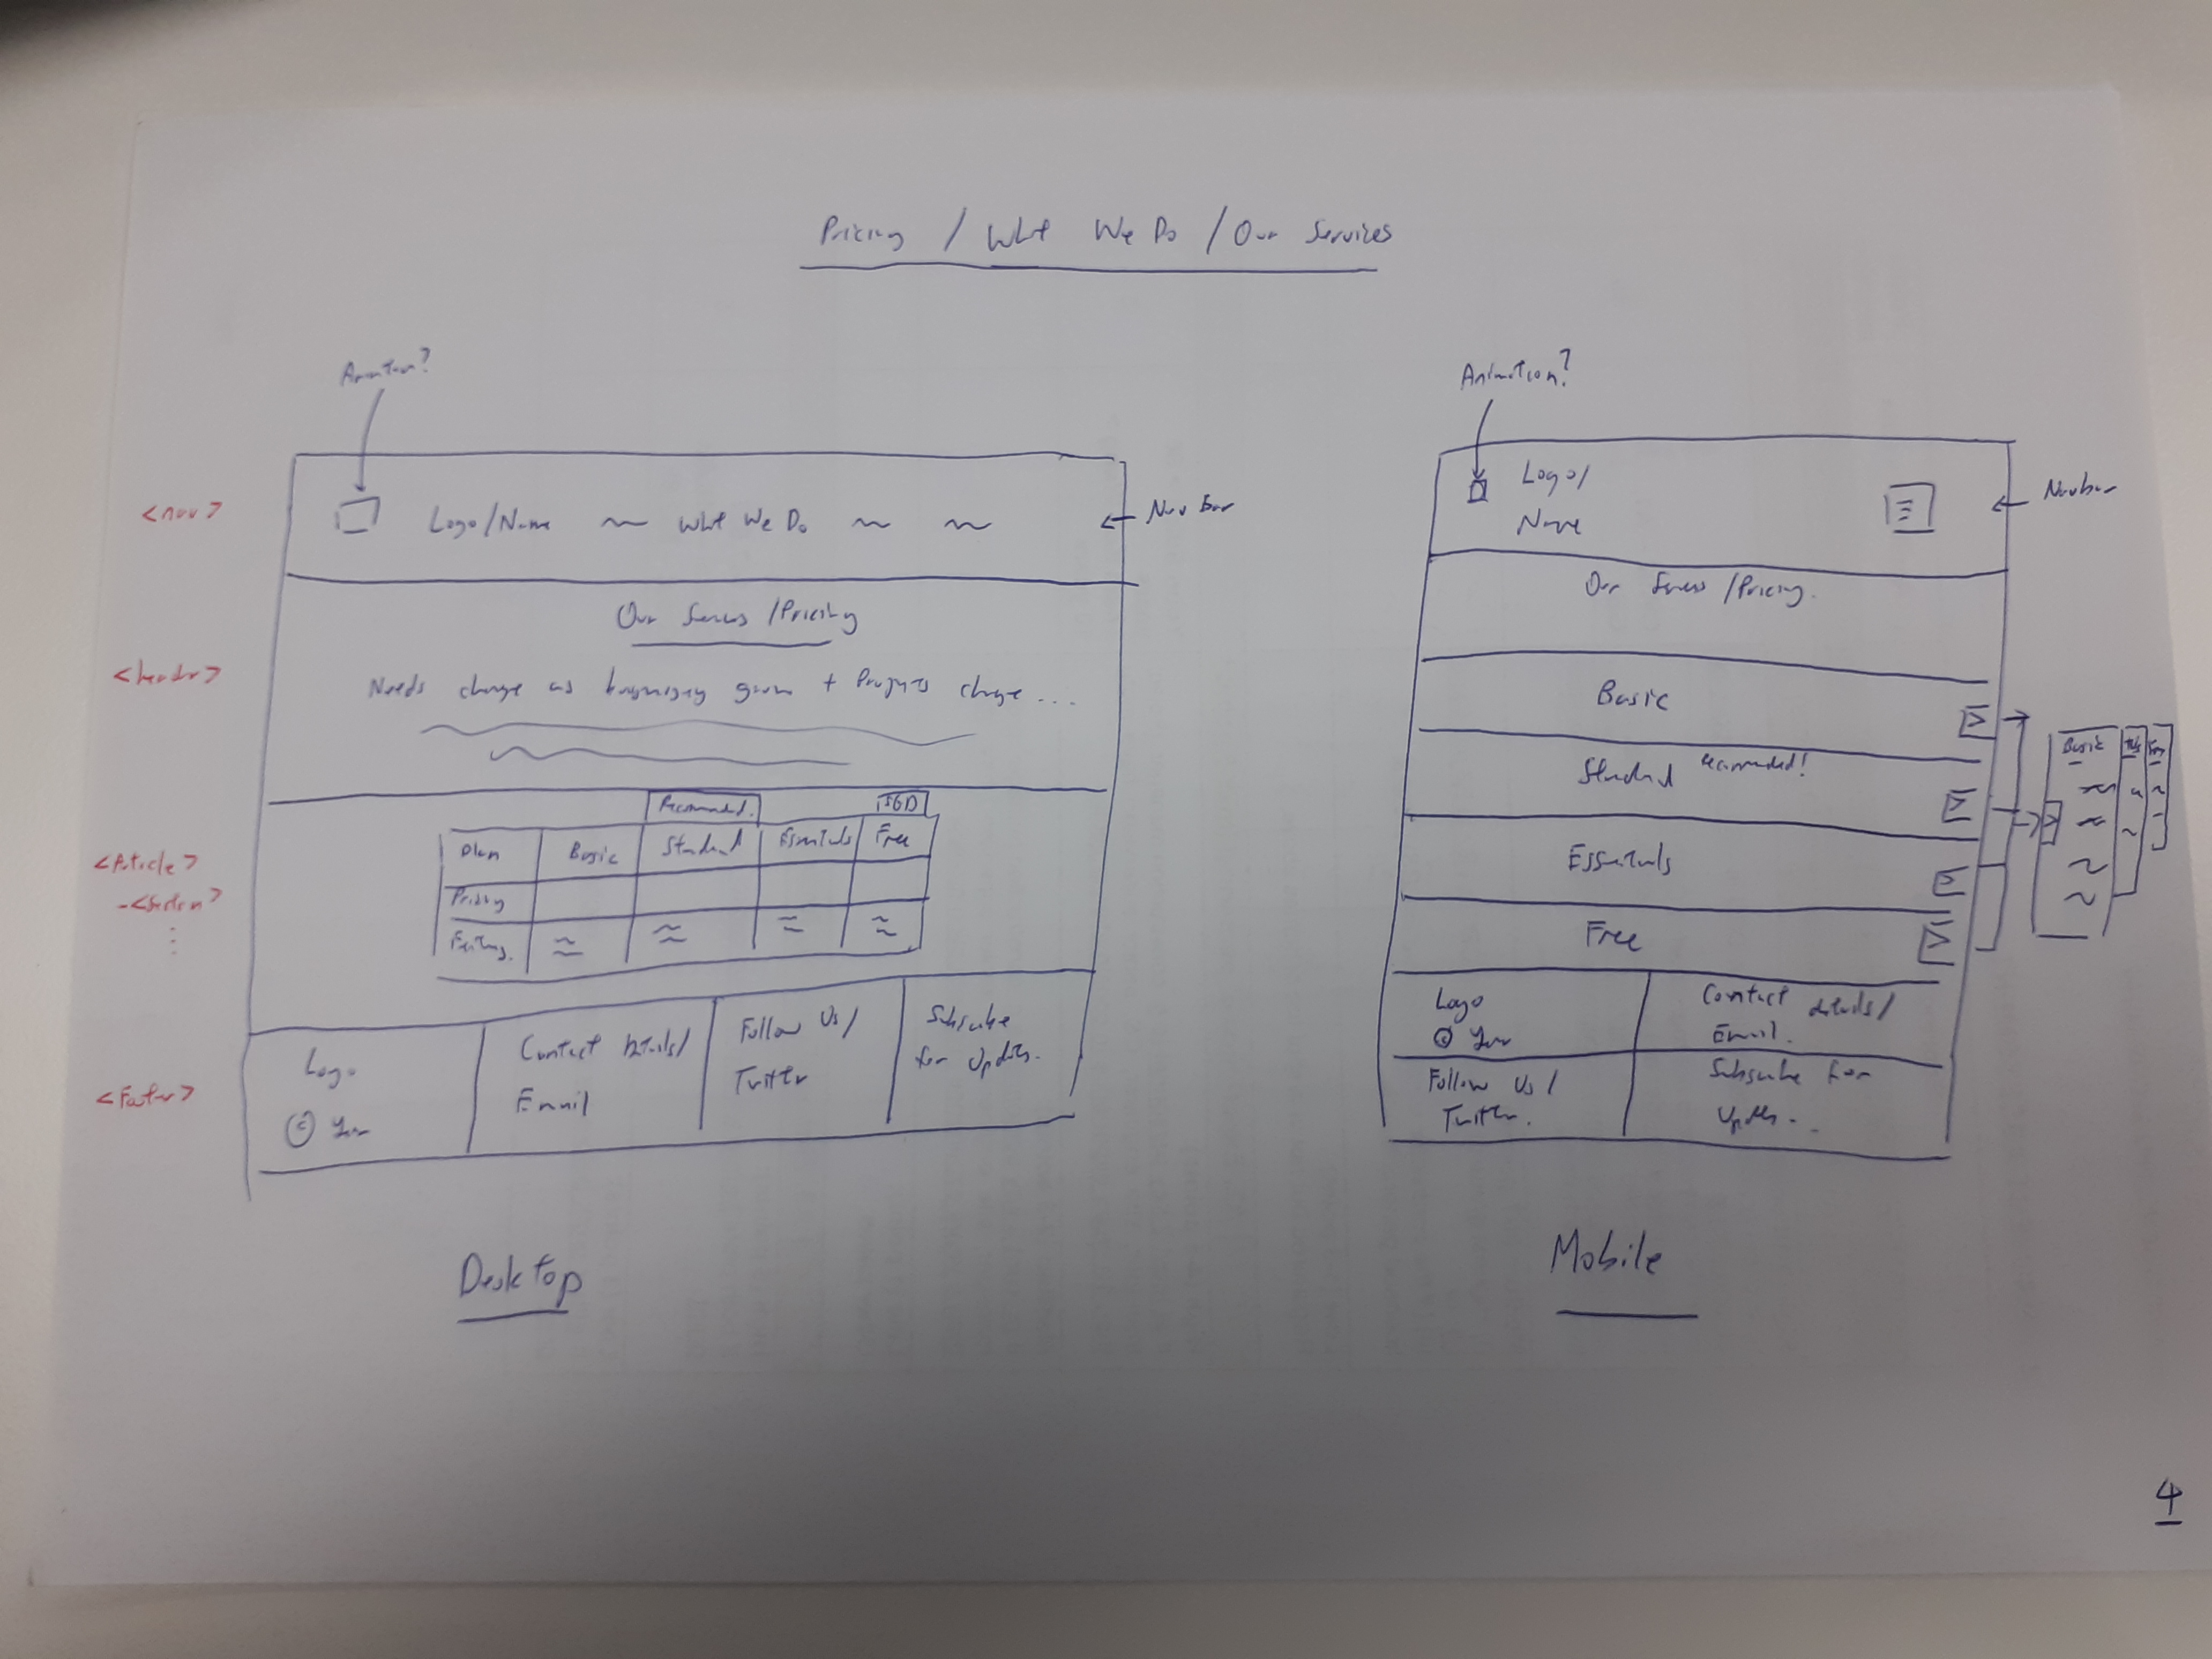 Pricing / What We Do / Our Services
Animation?
<nav>
Logo/Name What We Do
← Nav Bar
Our Services /Pricing
<header>
Needs change as grow + change ...
Recommended.
Plan Basic Standard Essentials Free
<Article>
Pricing
- <Section>
Features.
Logo
© Year
Contact Details/
Email
Follow Us/
Twitter
Subscribe
for Updates.
<Footer>
Desktop
Animation?
Logo/
Name
← Navbar
Our Services /Pricing.
Basic
Standard recommended!
Essentials
Free
Basic
Logo
© Year
Contact details/
Email.
Follow Us/
Twitter.
Subscribe for
Updates...
Mobile
4